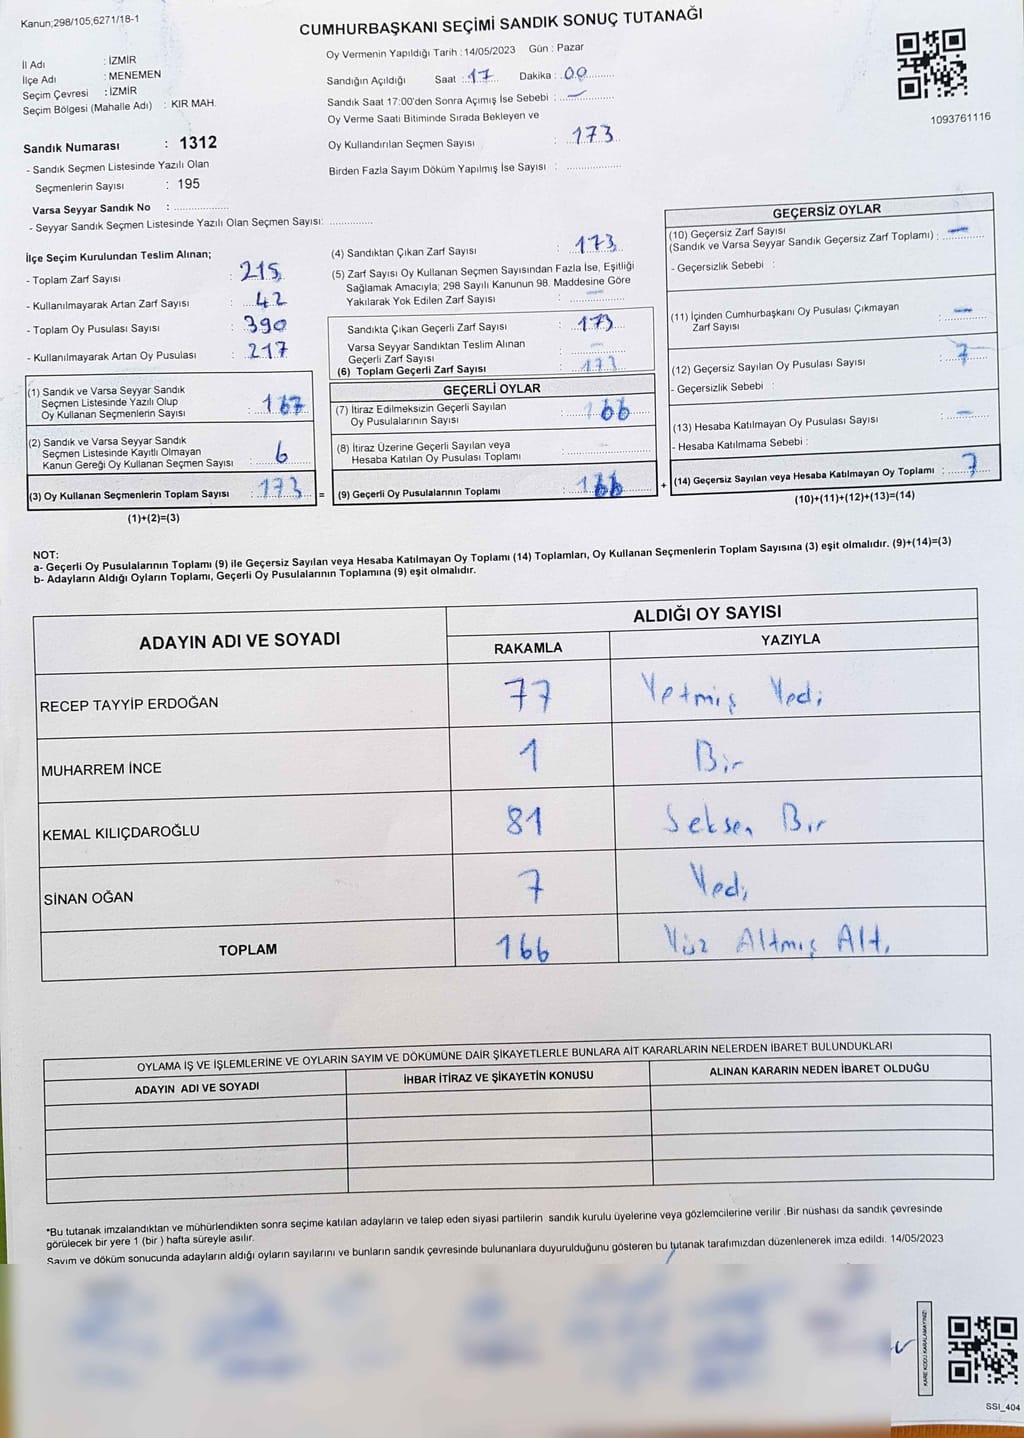 Kanun;298/105,6271/18-1
CUMHURBAŞKANI SEÇİMİ SANDIK SONUÇ TUTANAĞI
İl Adı : İZMİR
İlçe Adı : MENEMEN
Seçim Çevresi : İZMİR
Seçim Bölgesi (Mahalle Adı) : KIR MAH.
Oy Vermenin Yapıldığı Tarih : 14/05/2023 Gün : Pazar
Sandığın Açıldığı Saat : 17 Dakika : 00
Sandık Saat 17:00'den Sonra Açımış İse Sebebi : —
Oy Verme Saati Bitiminde Sırada Bekleyen ve
Oy Kullandırılan Seçmen Sayısı : 173
Birden Fazla Sayım Döküm Yapılmış İse Sayısı :
1093761116
Sandık Numarası : 1312
- Sandık Seçmen Listesinde Yazılı Olan
Seçmenlerin Sayısı : 195
Varsa Seyyar Sandık No :
- Seyyar Sandık Seçmen Listesinde Yazılı Olan Seçmen Sayısı:
İlçe Seçim Kurulundan Teslim Alınan;
- Toplam Zarf Sayısı : 215
- Kullanılmayarak Artan Zarf Sayısı : 42
- Toplam Oy Pusulası Sayısı : 390
- Kullanılmayarak Artan Oy Pusulası : 217
(1) Sandık ve Varsa Seyyar Sandık
Seçmen Listesinde Yazılı Olup
Oy Kullanan Seçmenlerin Sayısı : 167
(2) Sandık ve Varsa Seyyar Sandık
Seçmen Listesinde Kayıtlı Olmayan
Kanun Gereği Oy Kullanan Seçmen Sayısı : 6
(3) Oy Kullanan Seçmenlerin Toplam Sayısı : 173
(1)+(2)=(3)
(4) Sandıktan Çıkan Zarf Sayısı : 173
(5) Zarf Sayısı Oy Kullanan Seçmen Sayısından Fazla İse, Eşitliği
Sağlamak Amacıyla; 298 Sayılı Kanunun 98. Maddesine Göre
Yakılarak Yok Edilen Zarf Sayısı : —
Sandıkta Çıkan Geçerli Zarf Sayısı : 173
Varsa Seyyar Sandıktan Teslim Alınan
Geçerli Zarf Sayısı : —
(6) Toplam Geçerli Zarf Sayısı : 173
GEÇERLİ OYLAR
(7) İtiraz Edilmeksizin Geçerli Sayılan
Oy Pusulalarının Sayısı : 166
(8) İtiraz Üzerine Geçerli Sayılan veya
Hesaba Katılan Oy Pusulası Toplamı : —
= (9) Geçerli Oy Pusulalarının Toplamı : 166
GEÇERSİZ OYLAR
(10) Geçersiz Zarf Sayısı
(Sandık ve Varsa Seyyar Sandık Geçersiz Zarf Toplamı) : —
- Geçersizlik Sebebi :
(11) İçinden Cumhurbaşkanı Oy Pusulası Çıkmayan
Zarf Sayısı : —
(12) Geçersiz Sayılan Oy Pusulası Sayısı : 7
- Geçersizlik Sebebi :
(13) Hesaba Katılmayan Oy Pusulası Sayısı : —
- Hesaba Katılmama Sebebi :
+ (14) Geçersiz Sayılan veya Hesaba Katılmayan Oy Toplamı : 7
(10)+(11)+(12)+(13)=(14)
NOT:
a- Geçerli Oy Pusulalarının Toplamı (9) ile Geçersiz Sayılan veya Hesaba Katılmayan Oy Toplamı (14) Toplamları, Oy Kullanan Seçmenlerin Toplam Sayısına (3) eşit olmalıdır. (9)+(14)=(3)
b- Adayların Aldığı Oyların Toplamı, Geçerli Oy Pusulalarının Toplamına (9) eşit olmalıdır.
ADAYIN ADI VE SOYADI ALDIĞI OY SAYISI
RAKAMLA YAZIYLA
RECEP TAYYİP ERDOĞAN 77 Yetmiş Yedi
MUHARREM İNCE 1 Bir
KEMAL KILIÇDAROĞLU 81 Seksen Bir
SİNAN OĞAN 7 Yedi
TOPLAM 166 Yüz Altmış Altı
OYLAMA İŞ VE İŞLEMLERİNE VE OYLARIN SAYIM VE DÖKÜMÜNE DAİR ŞİKAYETLERLE BUNLARA AİT KARARLARIN NELERDEN İBARET BULUNDUKLARI
ADAYIN ADI VE SOYADI İHBAR İTİRAZ VE ŞİKAYETİN KONUSU ALINAN KARARIN NEDEN İBARET OLDUĞU
*Bu tutanak imzalandıktan ve mühürlendikten sonra seçime katılan adayların ve talep eden siyasi partilerin sandık kurulu üyelerine veya gözlemcilerine verilir .Bir nüshası da sandık çevresinde
görülecek bir yere 1 (bir ) hafta süreyle asılır.
Sayım ve döküm sonucunda adayların aldığı oyların sayılarını ve bunların sandık çevresinde bulunanlara duyurulduğunu gösteren bu tutanak tarafımızdan düzenlenerek imza edildi. 14/05/2023
KARE KODU KARALAMAYINIZ!
SSI_404